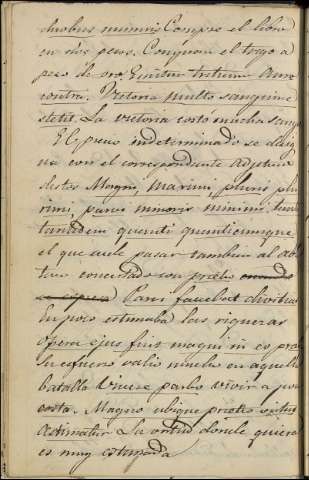 duobus nummis Compre el libro
en dos pesos. Compran el trigo a
peso de oro, Emitur triticum auro
contra. Victoria multo sanguine
stetit. La victoria costo mucha sang
El precio indeterminado se desig
na con el correspondiente adjetivo
destos Magni, maximi pluris plu
rimi, parvi minoris minimi. tanti
tantidem quanti quanticumque,
el que suele pasar tambien al abla
tivo concertado con pretio
Parvi faciebat divitias
En poco estimaba las riquezas
Opera ejus fuit magni in eo prae
Su esfuerzo valio mucho en aquella
batalla Vivere parvo vivir a poca
costa. Magno ubique pretio virtus
aestimatur La virtud donde quiera
es muy estimada